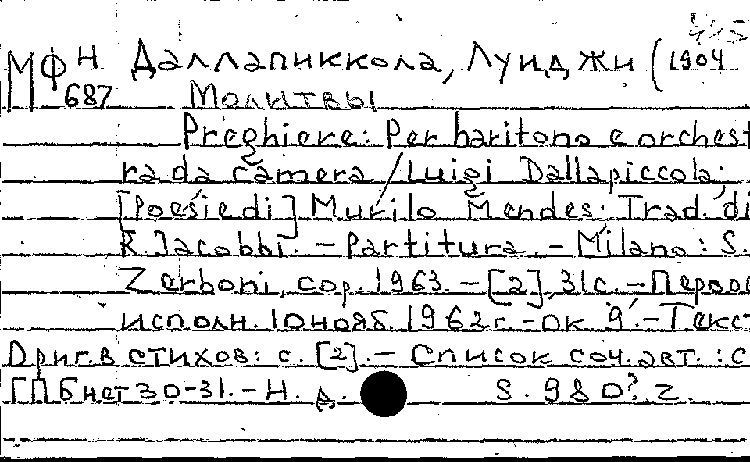 МФН Даллапиккола, Луиджи (1904
687 Молитвы
Preghiere: Per baritono e orchest
ra da camera / Luigi Dallapiccola;
[Poesie di] Murilo Mendes; Trad. di
R. Jacobbi. - Partitura. - Milano: S.
Zerboni, cop. 1963. - [2], 31 с. - Первое
исполн. 10 нояб. 1962 г. - ок. 9'. - Текст
Ориг. в стихов: с. [2]. - Список соч. авт.: с
ГПБ нет 30-31. - Н. д. S. 980? Z.